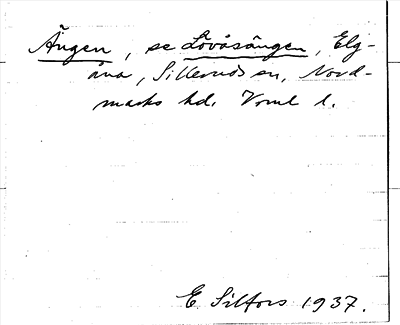 Ängen, se Lövåsängen, Elg-
åna, Silleruds sn, Nord-
marks hd. Verml l.
E Silfors 1937.